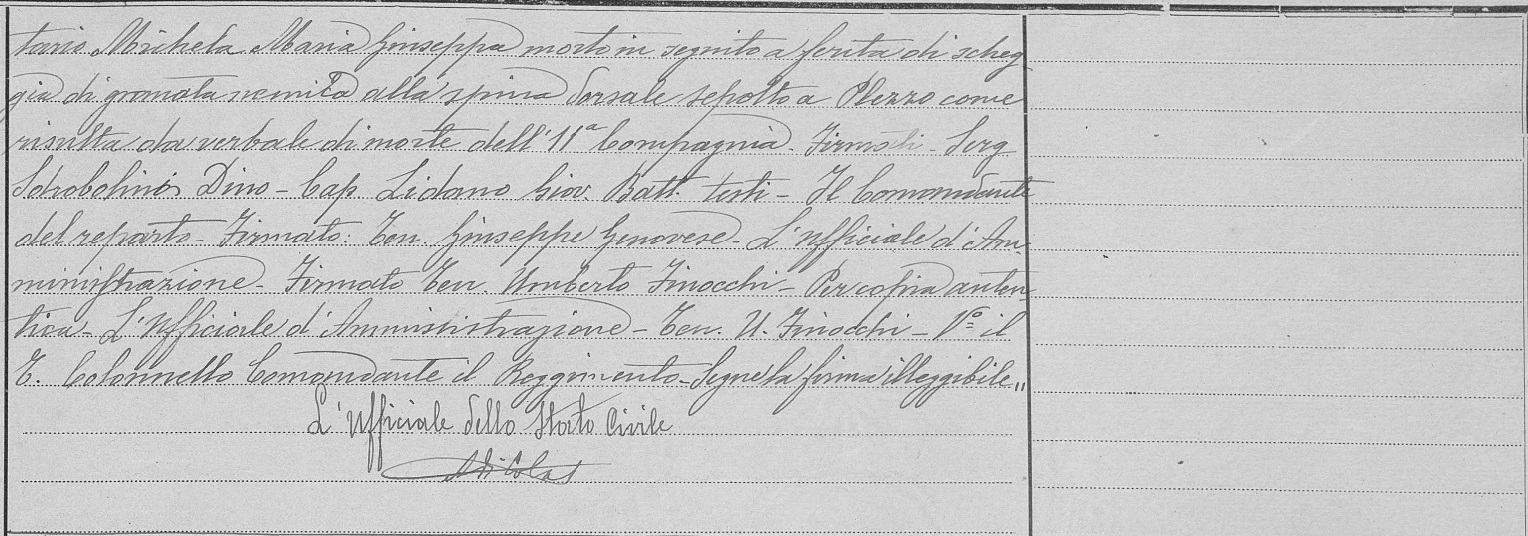 tario Michela Maria Giuseppa morto in seguito a ferita di scheg-
gia di granata nemica alla spina dorsale sepolto a Plezzo come
risulta da verbale di morte dell'11ª Compagnia - Firmati - Serg
Dino - Cap. Lidano Giov. Batt. testi - Il Comandante
del reparto - Firmato: Ten. Giuseppe Genovese - L'ufficiale d'Am-
ministrazione - Firmato Ten. Umberto Finocchi - Per copia auten-
tica - L'Ufficiale d'Amministrazione - Ten. U. Finocchi - Vº il
T. Colonnello Comandante il Reggimento - Segue la firma illeggibile„
L'Ufficiale dello Stato Civile